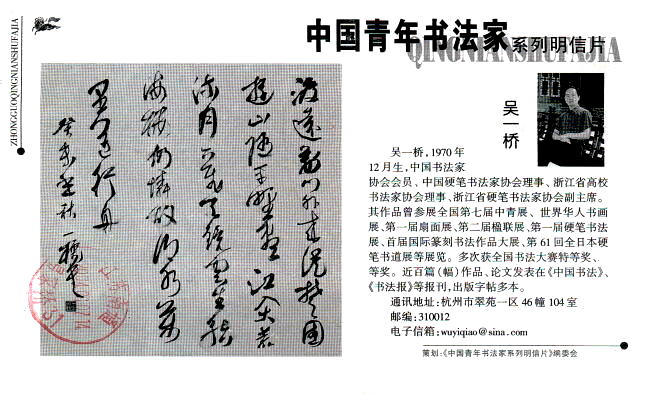 ZHONGGUOQINGNIANSHUFAJIA
中国青年书法家系列明信片
QINGNIANSHUFAJIA
渡遠荆門外來從楚國
遊山隨平野盡江入大荒
流月下飛天鏡雲生結
海樓仍憐故鄉水萬
里送行舟
癸未秋一橋
吴一桥
吴一桥,1970年
12月生,中国书法家
协会会员、中国硬笔书法家协会理事、浙江省高校
书法家协会理事、浙江省硬笔书法家协会副主席。
其作品曾参展全国第七届中青展、世界华人书画
展、第一届扇面展、第二届楹联展、第一届硬笔书法
展、首届国际篆刻书法作品大展、第61回全日本硬
笔书道展等展览。多次获全国书法大赛特等奖、一
等奖。近百篇(幅)作品、论文发表在《中国书法》、
《书法报》等报刊,出版字帖多本。
通讯地址:杭州市翠苑一区46幢104室
邮编:310012
电子信箱:wuyiqiao@sina.com
策划:《中国青年书法家系列明信片》编委会